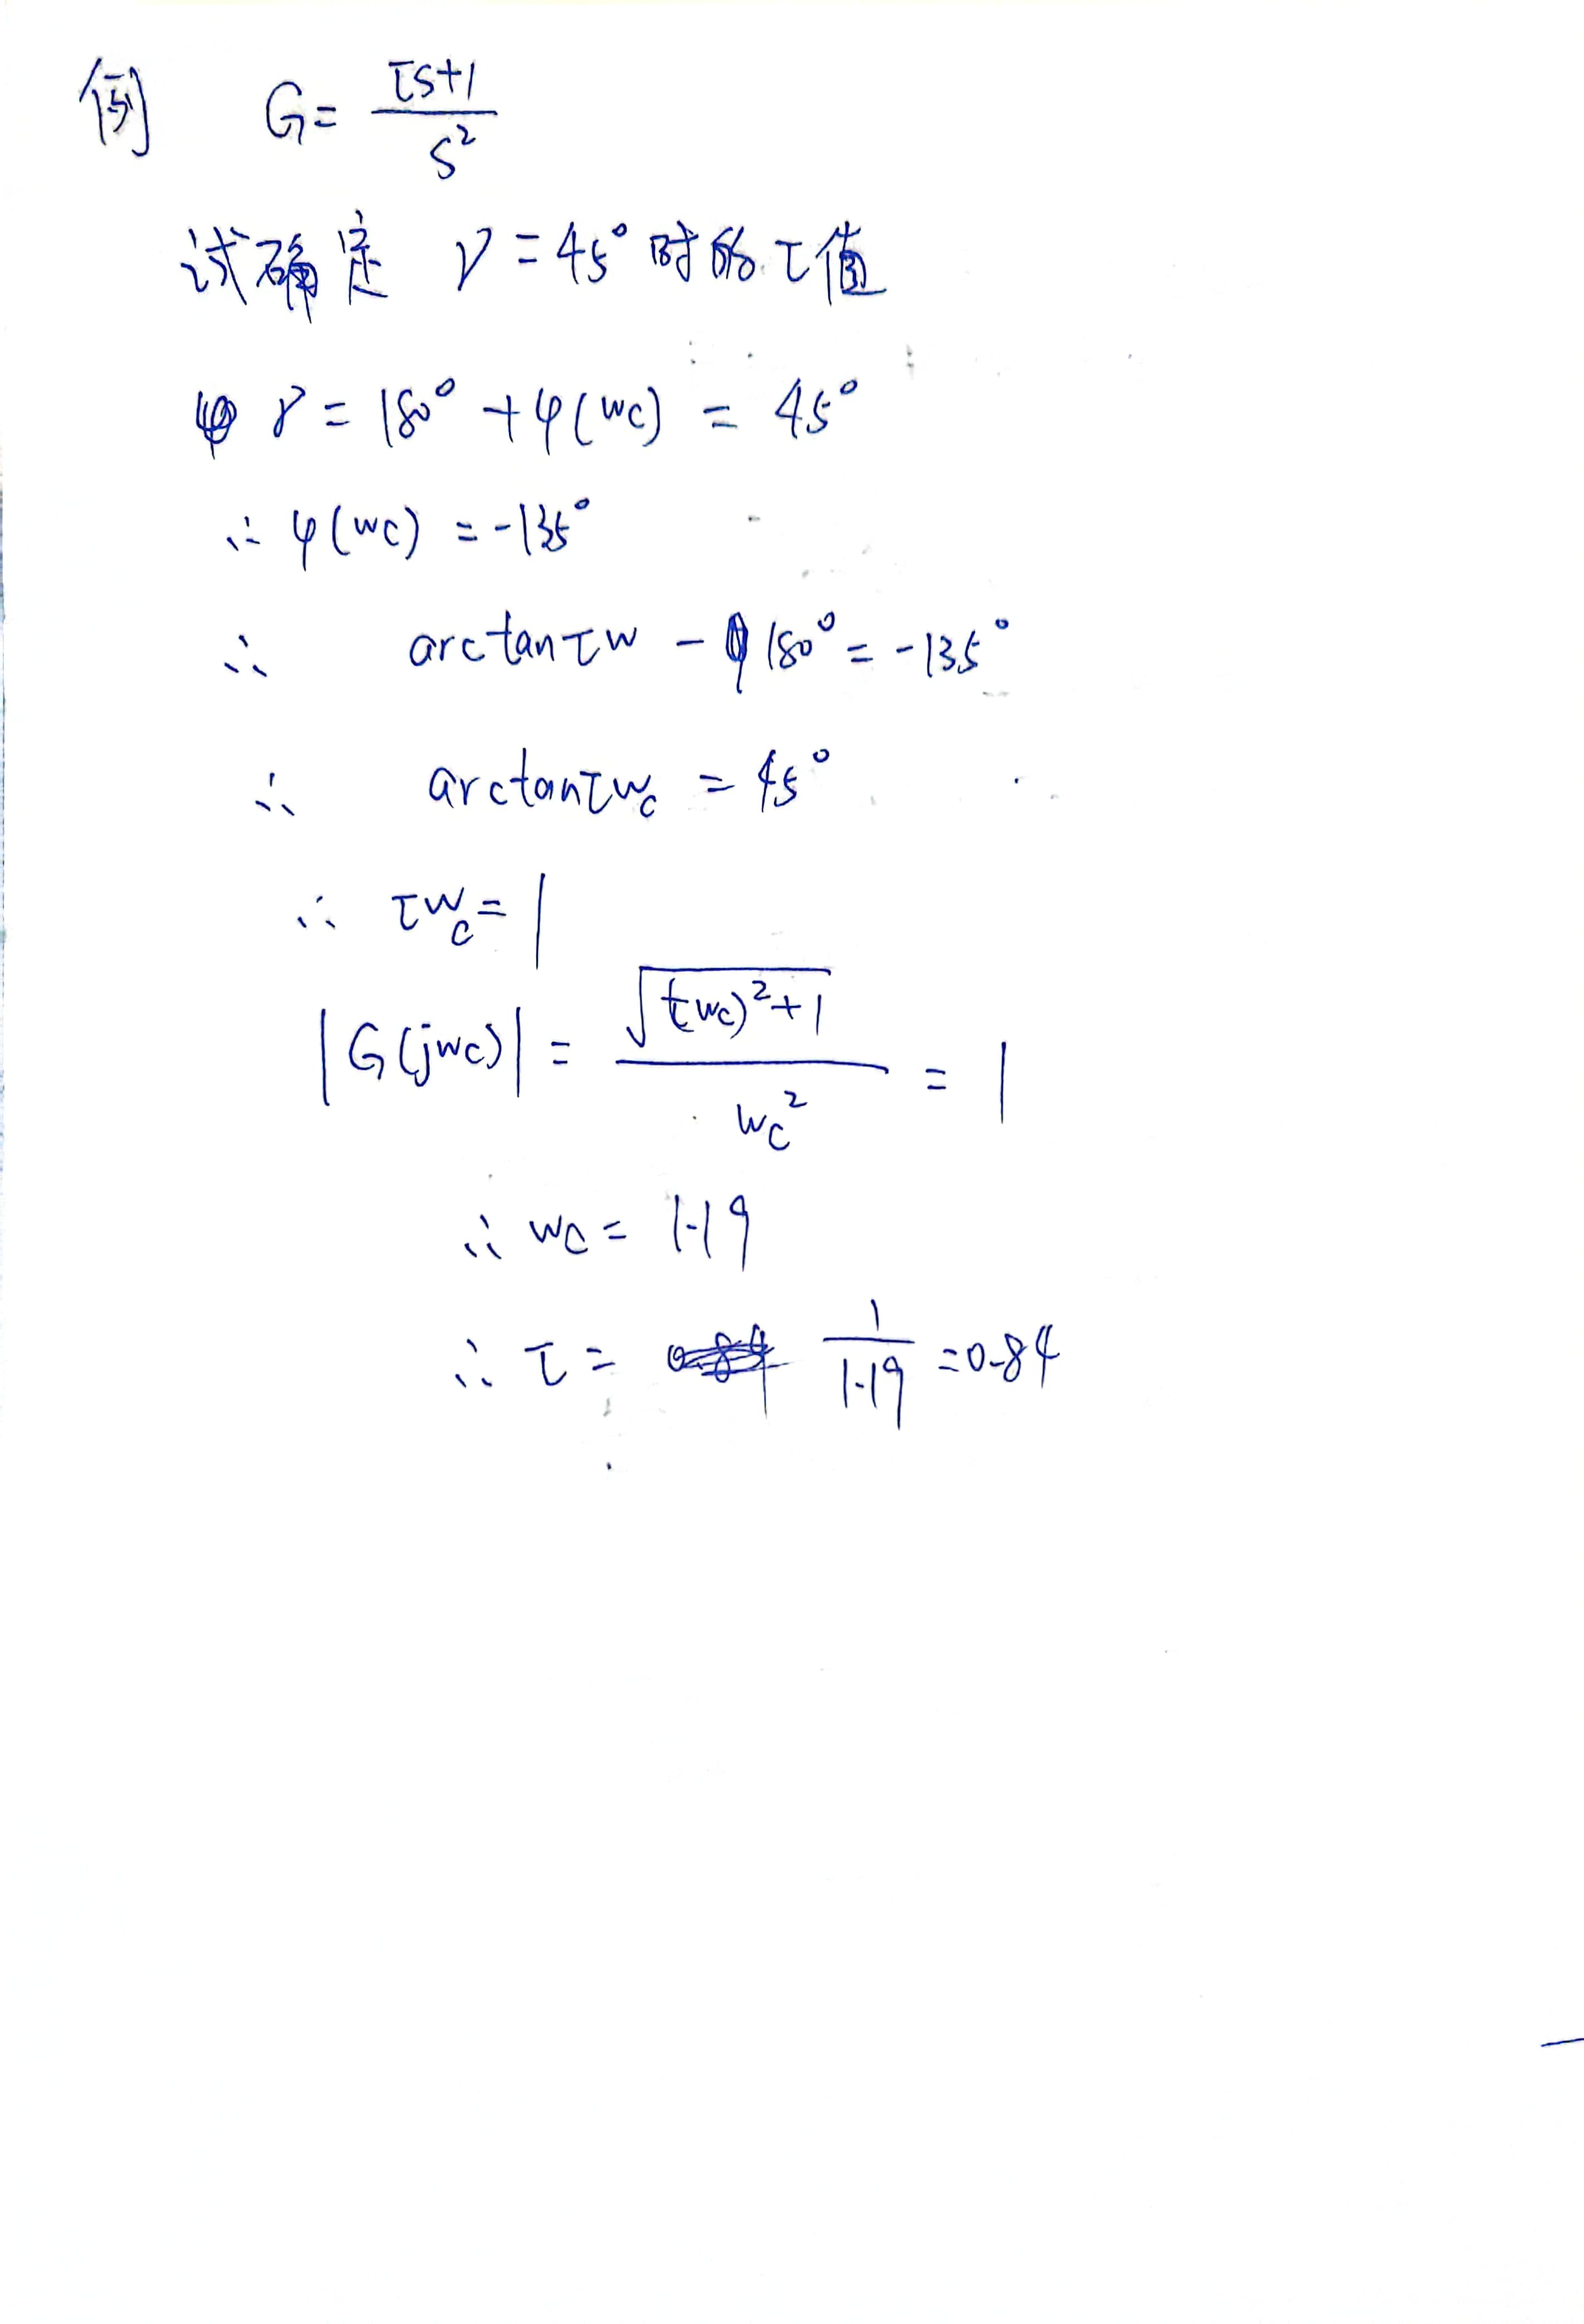 例 G = (τs+1)/s²
试确定 γ = 45° 时的 τ 值
γ = 180° + φ(wc) = 45°
∴ φ(wc) = -135°
∴ arctanτw - 180° = -135°
∴ arctanτwc = 45°
∴ τwc = 1
|G(jwc)| = √((τwc)²+1) / wc² = 1
∴ wc = 1.19
∴ τ = 1/1.19 = 0.84